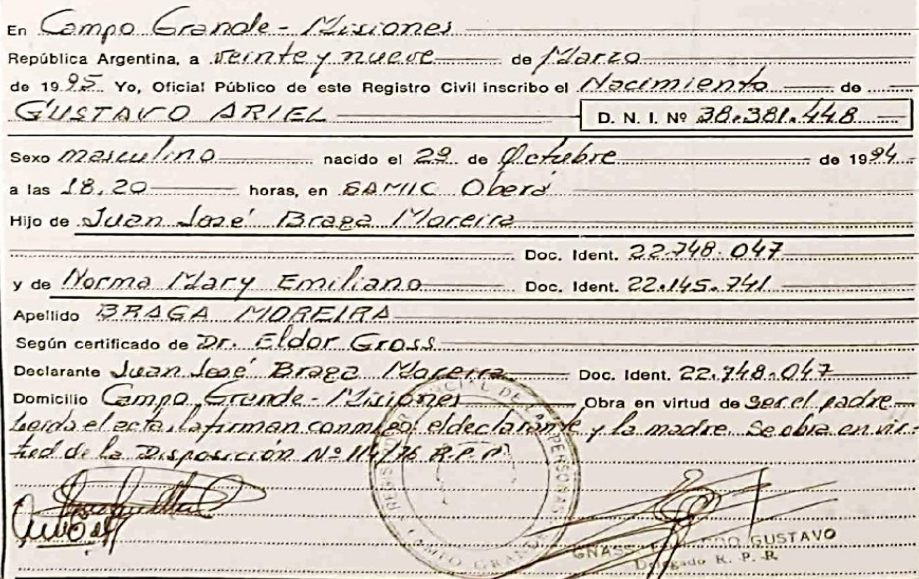 En Campo Grande - Misiones
República Argentina, a veinte y nueve de Marzo
de 1995 Yo, Oficial Público de este Registro Civil inscribo el Nacimiento de
GUSTAVO ARIEL D. N. I. Nº 38.381.448
Sexo masculino nacido el 29 de Octubre de 1994
a las 18.20 horas, en SAMIC Oberá
Hijo de Juan José Braga Moreira
Doc. Ident. 22.748.047
y de Norma Mary Emiliano Doc. Ident. 22.145.741
Apellido BRAGA MOREIRA
Según certificado de Dr. Eldor Gross
Declarante Juan José Braga Moreira Doc. Ident. 22.748.047
Domicilio Campo Grande - Misiones Obra en virtud de ser el padre
Leída el acta, la firman conmigo el declarante y la madre. Se obra en vir-
tud de la Disposición Nº 114/76 R.P.P.
DE LAS PERSONAS
CAMPO GRANDE
GUSTAVO
Delegado R. P. P.